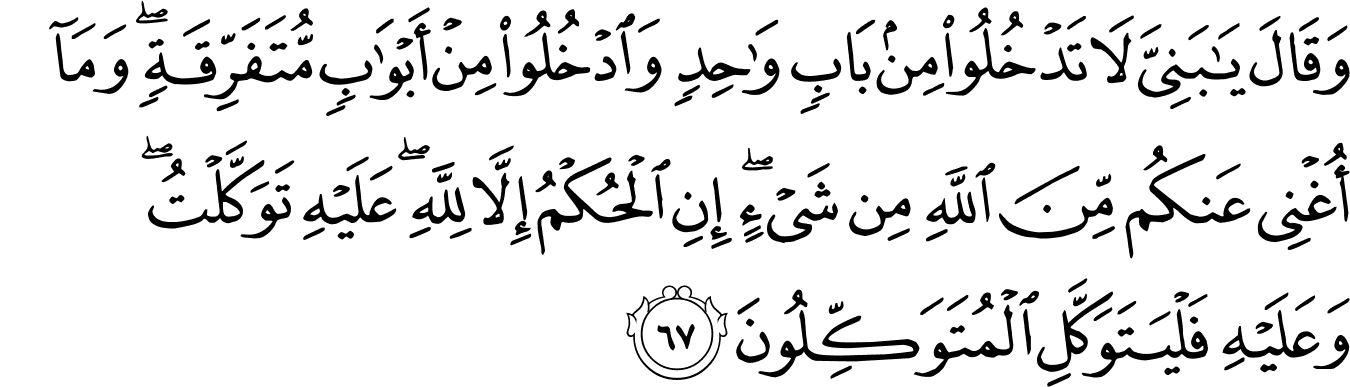 وَقَالَ يَـٰبَنِىَّ لَا تَدْخُلُوا۟ مِنۢ بَابٍ وَٰحِدٍ وَٱدْخُلُوا۟ مِنْ أَبْوَٰبٍ مُّتَفَرِّقَةٍ ۖ وَمَآ
أُغْنِى عَنكُم مِّنَ ٱللَّهِ مِن شَىْءٍ ۖ إِنِ ٱلْحُكْمُ إِلَّا لِلَّهِ ۖ عَلَيْهِ تَوَكَّلْتُ ۖ
وَعَلَيْهِ فَلْيَتَوَكَّلِ ٱلْمُتَوَكِّلُونَ ٦٧